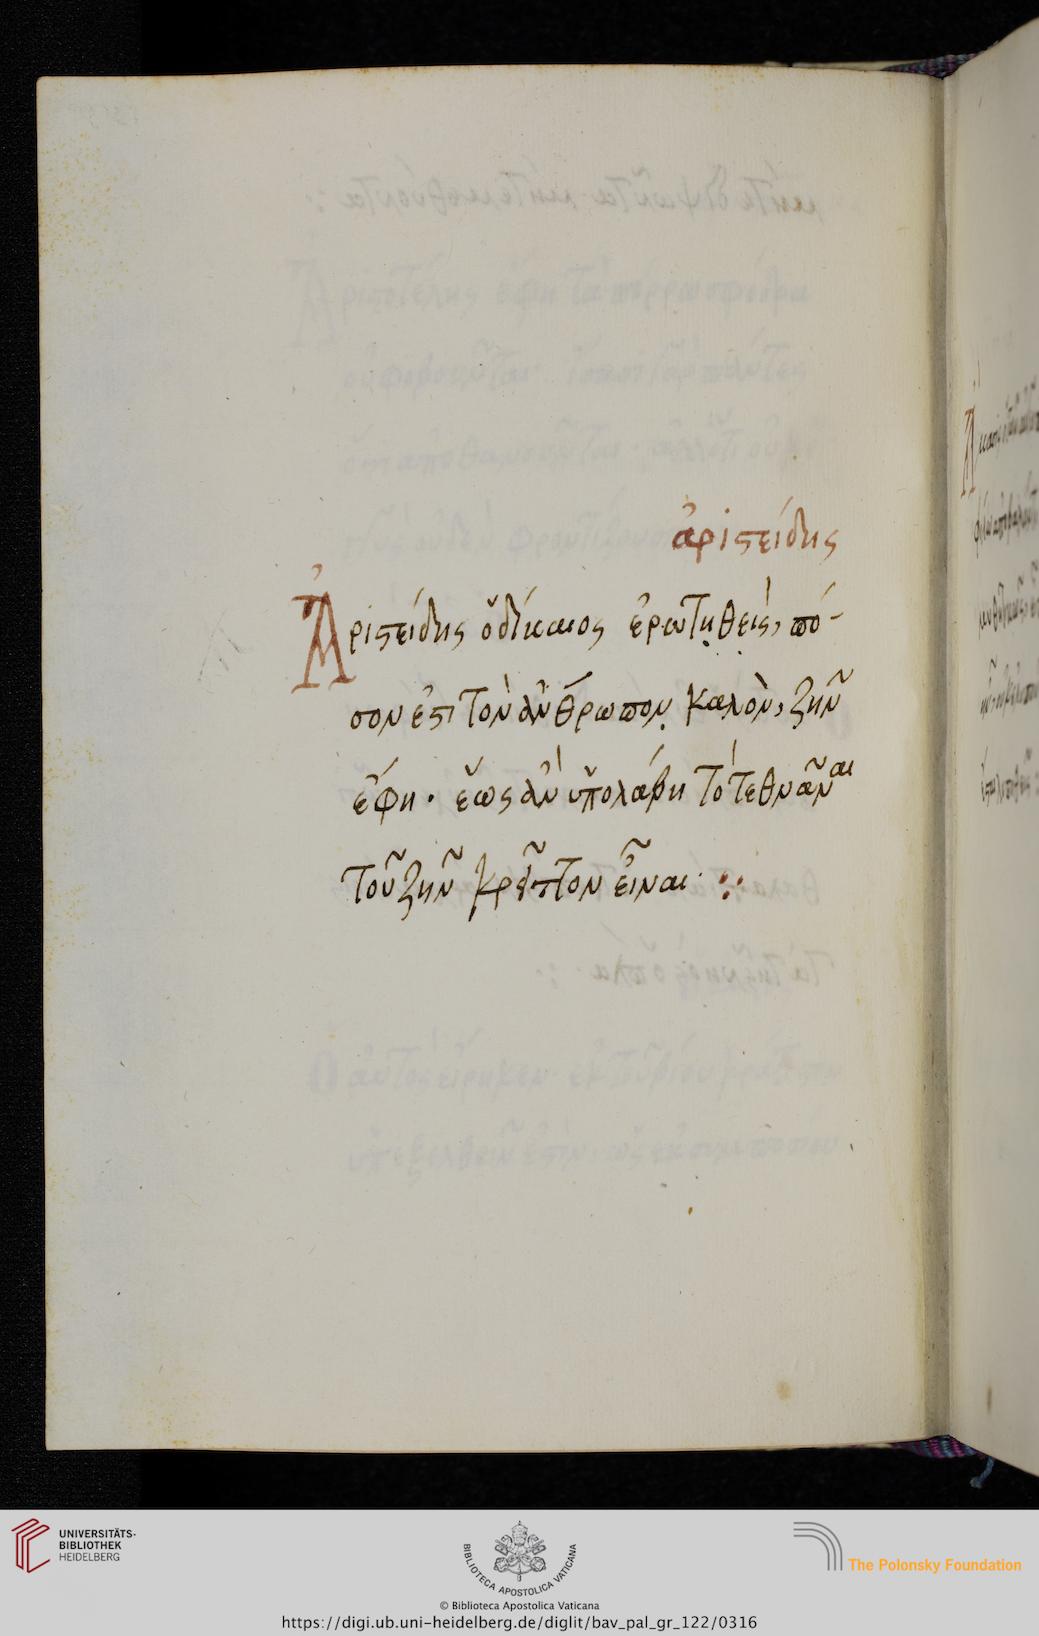 ἀριστείδης
Ἀριστείδης ὁ δίκαιος ἐρωτηθεὶς, πό-
σον ἐστὶ τὸν ἄνθρωπον καλὸν, ζῆν
ἔφη· ἕως ἂν ὑπολάβη τὸ τεθνᾶναι
τοῦ ζῆν κρεῖττον εἶναι :·
UNIVERSITÄTS-
BIBLIOTHEK
HEIDELBERG
BIBLIOTECA APOSTOLICA VATICANA
The Polonsky Foundation
© Biblioteca Apostolica Vaticana
https://digi.ub.uni-heidelberg.de/diglit/bav_pal_gr_122/0316